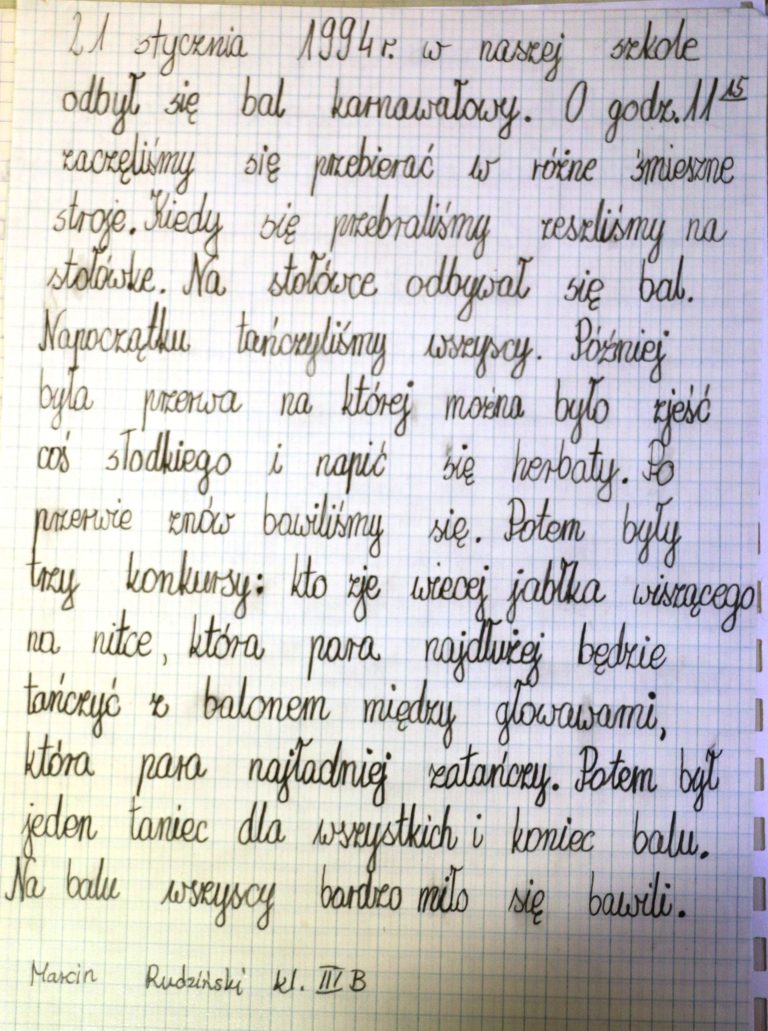 21 stycznia 1994r. w naszej szkole
odbył się bal karnawałowy. O godz. 11 15
zaczęliśmy się przebierać w różne śmieszne
stroje. Kiedy się przebraliśmy zeszliśmy na
stołówke. Na stołówce odbywał się bal.
Napoczątku tańczyliśmy wszyscy. Później
była przerwa na której można było zjeść
coś słodkiego i napić się herbaty. Po
przerwie znów bawiliśmy się. Potem były
trzy konkursy: kto zje wiecej jabłka wiszącego
na nitce, która para najdłużej będzie
tańczyć z balonem między głowawami,
która para najładniej zatańczy. Potem był
jeden taniec dla wszystkich i koniec balu.
Na balu wszyscy bardzo miło się bawili.
Marcin Rudziński kl. III B